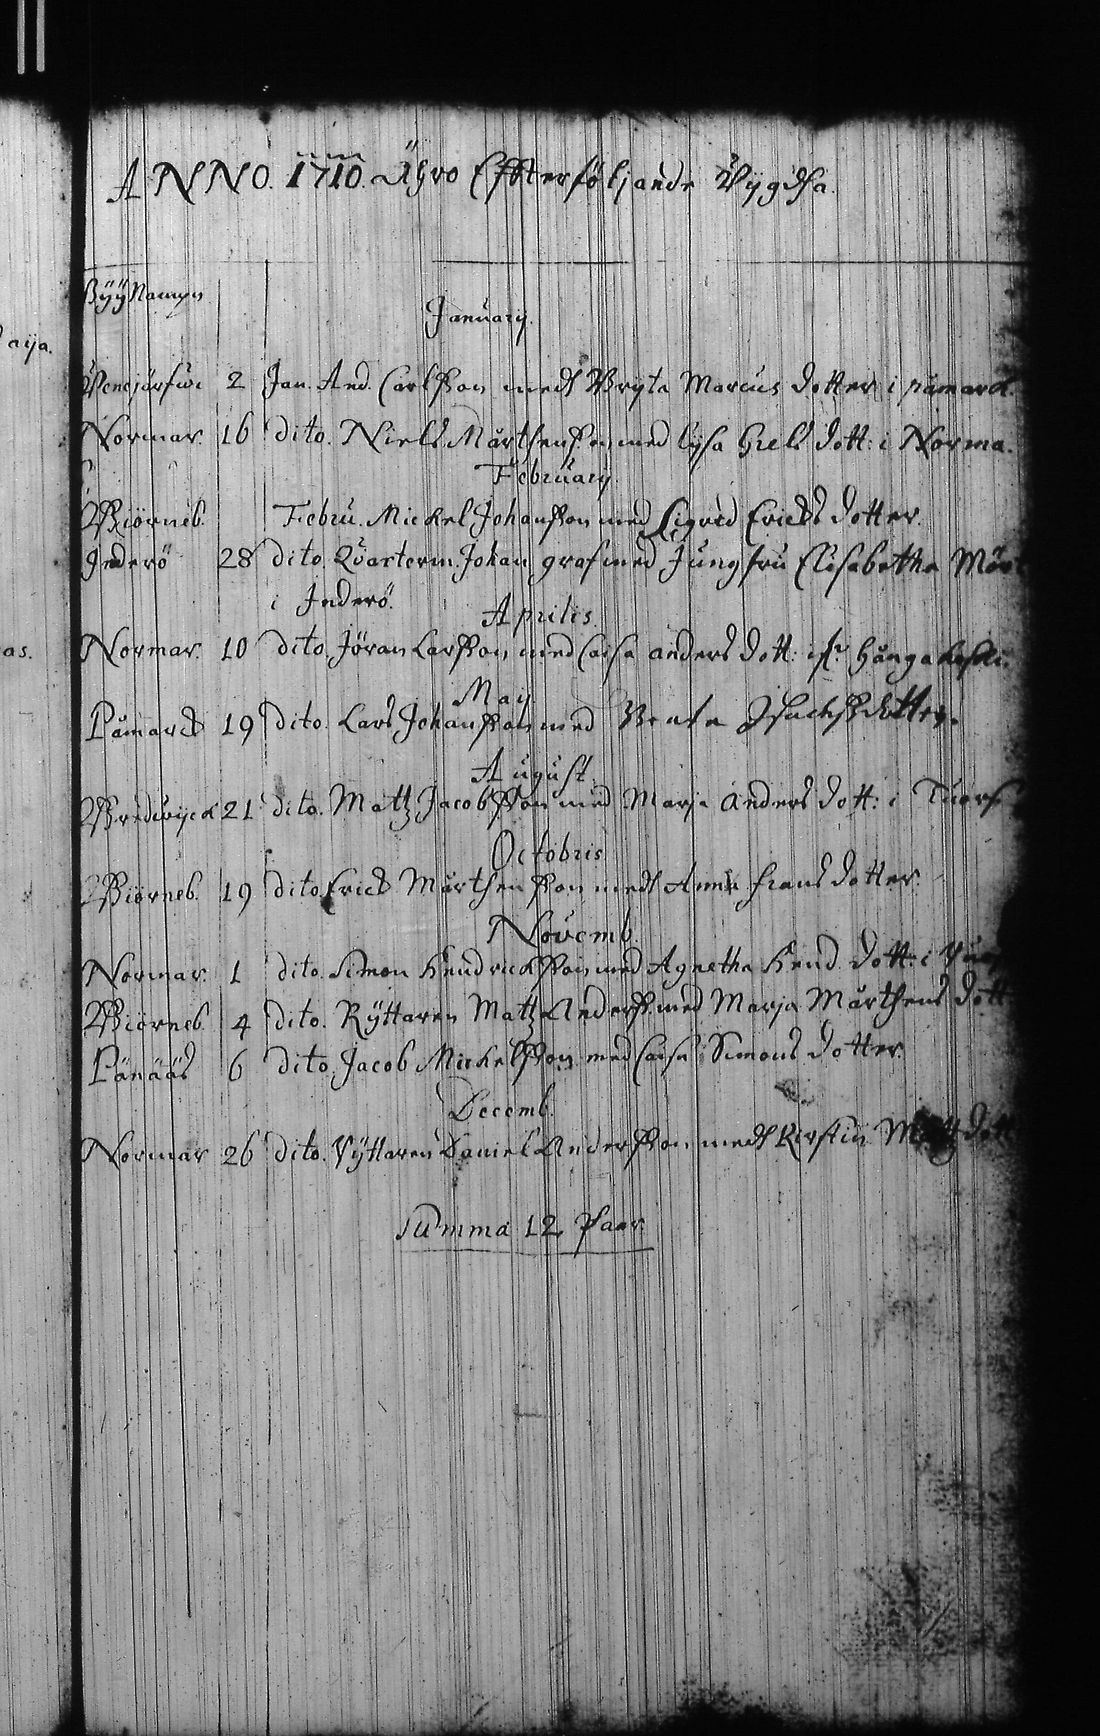 aija.
as.
ANNO. 1710. Ähro Effterföljande Vijgdha.
Bÿÿ Namyn
January.
2 Jan. And. Carlsson medh Bryta Marcus dotter i påmarck.
Normar. 16 dito. Niels Mårthensson med Lysa Grels dott: i Norma.
February.
Biörneb. Febru. Mickel Johansson med Sigrid Ericks dotter.
Inderö 28 dito. Qvarterm. Johan graf med Jungfru Elisabetha Mårt
i Inderö.
Aprilis.
Normar. 10 dito. Jöran Larsson med Caisa anders dott:
May
Påmarck 19 dito. Lars Johansson med Beata Isachs dotter.
August.
Bredwijck 21 dito. Matz Jacobsson med Marja Anders dott: i
Octobris
Biörneb. 19 dito. Erick Mårthensson medh Anna frans dotter.
Novemb.
Normar. 1 dito. Simon Hendricksson med Agnetha Hend. dott: i
Biörneb. 4 dito. Rÿttaren Matz Anderss. med Marja Mårthens dott
Pånääs 6 dito. Jacob Mickelsson med Caisa Simons dotter.
Decemb.
Normar 26 dito. Rÿttaren Daniel Andersson medh Kirstin Matz dott
Summa 12 Paar.